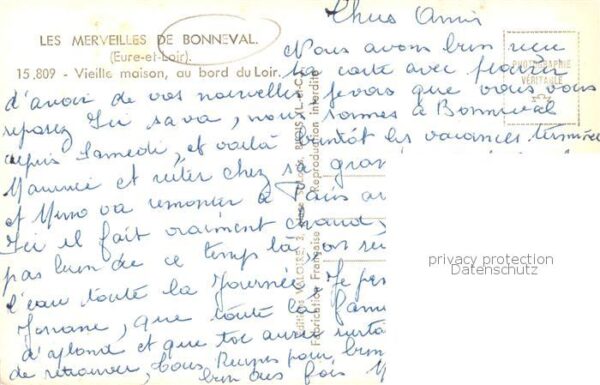 LES MERVEILLES DE BONNEVAL.
(Eure-et-Loir).
15.809 - Vieille maison, au bord du Loir.
Editions VALOIRE
BLOIS (L.-et-C.)
Fabrication Française
Reproduction Interdite
PHOTOGRAPHIE
VÉRITABLE
Chers Amis
Nous avons bien reçu
ta carte avec plaisir
d'avoir de vos nouvelles je vois que vous vous
reposez Ici sa va, nous sommes à Bonneval
depuis Samedi, et voilà bientôt les vacances terminées
et rester chez sa gran
et va remonter à Paris
Ici il fait vraiment chaud,
pas bien de ce temps là, on
l'eau toute la journée. Je pen
Josiane, que toute la fami
d'aplomb et que toi aussi surtout
de retrouver, Bous pour bien
bien des fois
privacy protection
Datenschutz